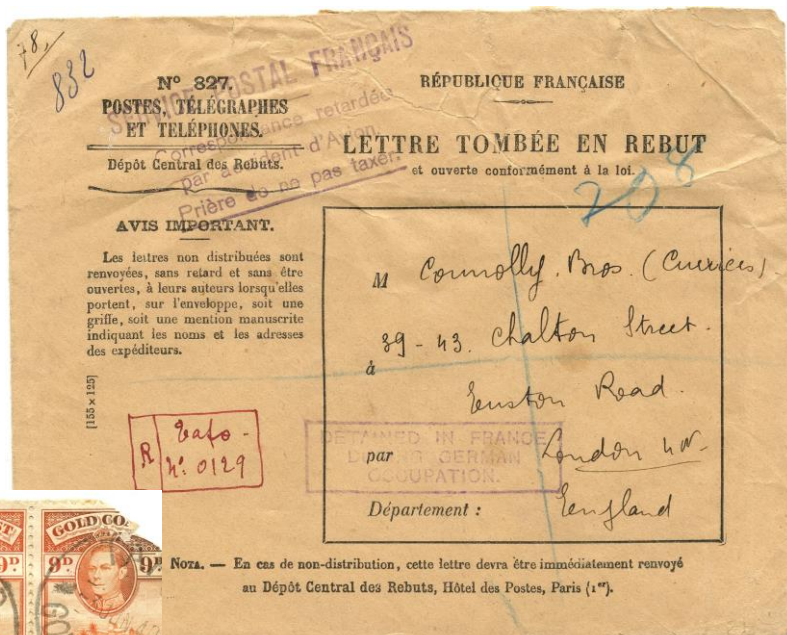 78,
832
N° 827.
POSTES, TÉLÉGRAPHES
ET TÉLÉPHONES.
Dépôt Central des Rebuts.
SERVICE POSTAL FRANÇAIS
Correspondance retardée
par accident d'Avion.
Prière de ne pas taxer.
RÉPUBLIQUE FRANÇAISE
LETTRE TOMBÉE EN REBUT
et ouverte conformément à la loi.
208
AVIS IMPORTANT.
Les lettres non distribuées sont
renvoyées, sans retard et sans être
ouvertes, à leurs auteurs lorsqu'elles
portent, sur l'enveloppe, soit une
griffe, soit une mention manuscrite
indiquant les noms et les adresses
des expéditeurs.
[155 x 125]
M Connolly. Bros. (Curriers)
39-43. Chalton Street.
à
Euston Road.
par London NW.
Département : England
R
N: 0129
DETAINED IN FRANCE
DURING GERMAN
OCCUPATION.
NOTA. — En cas de non-distribution, cette lettre devra être immédiatement renvoyé
au Dépôt Central des Rebuts, Hôtel des Postes, Paris (1er).
GOLD CO
9D 9D